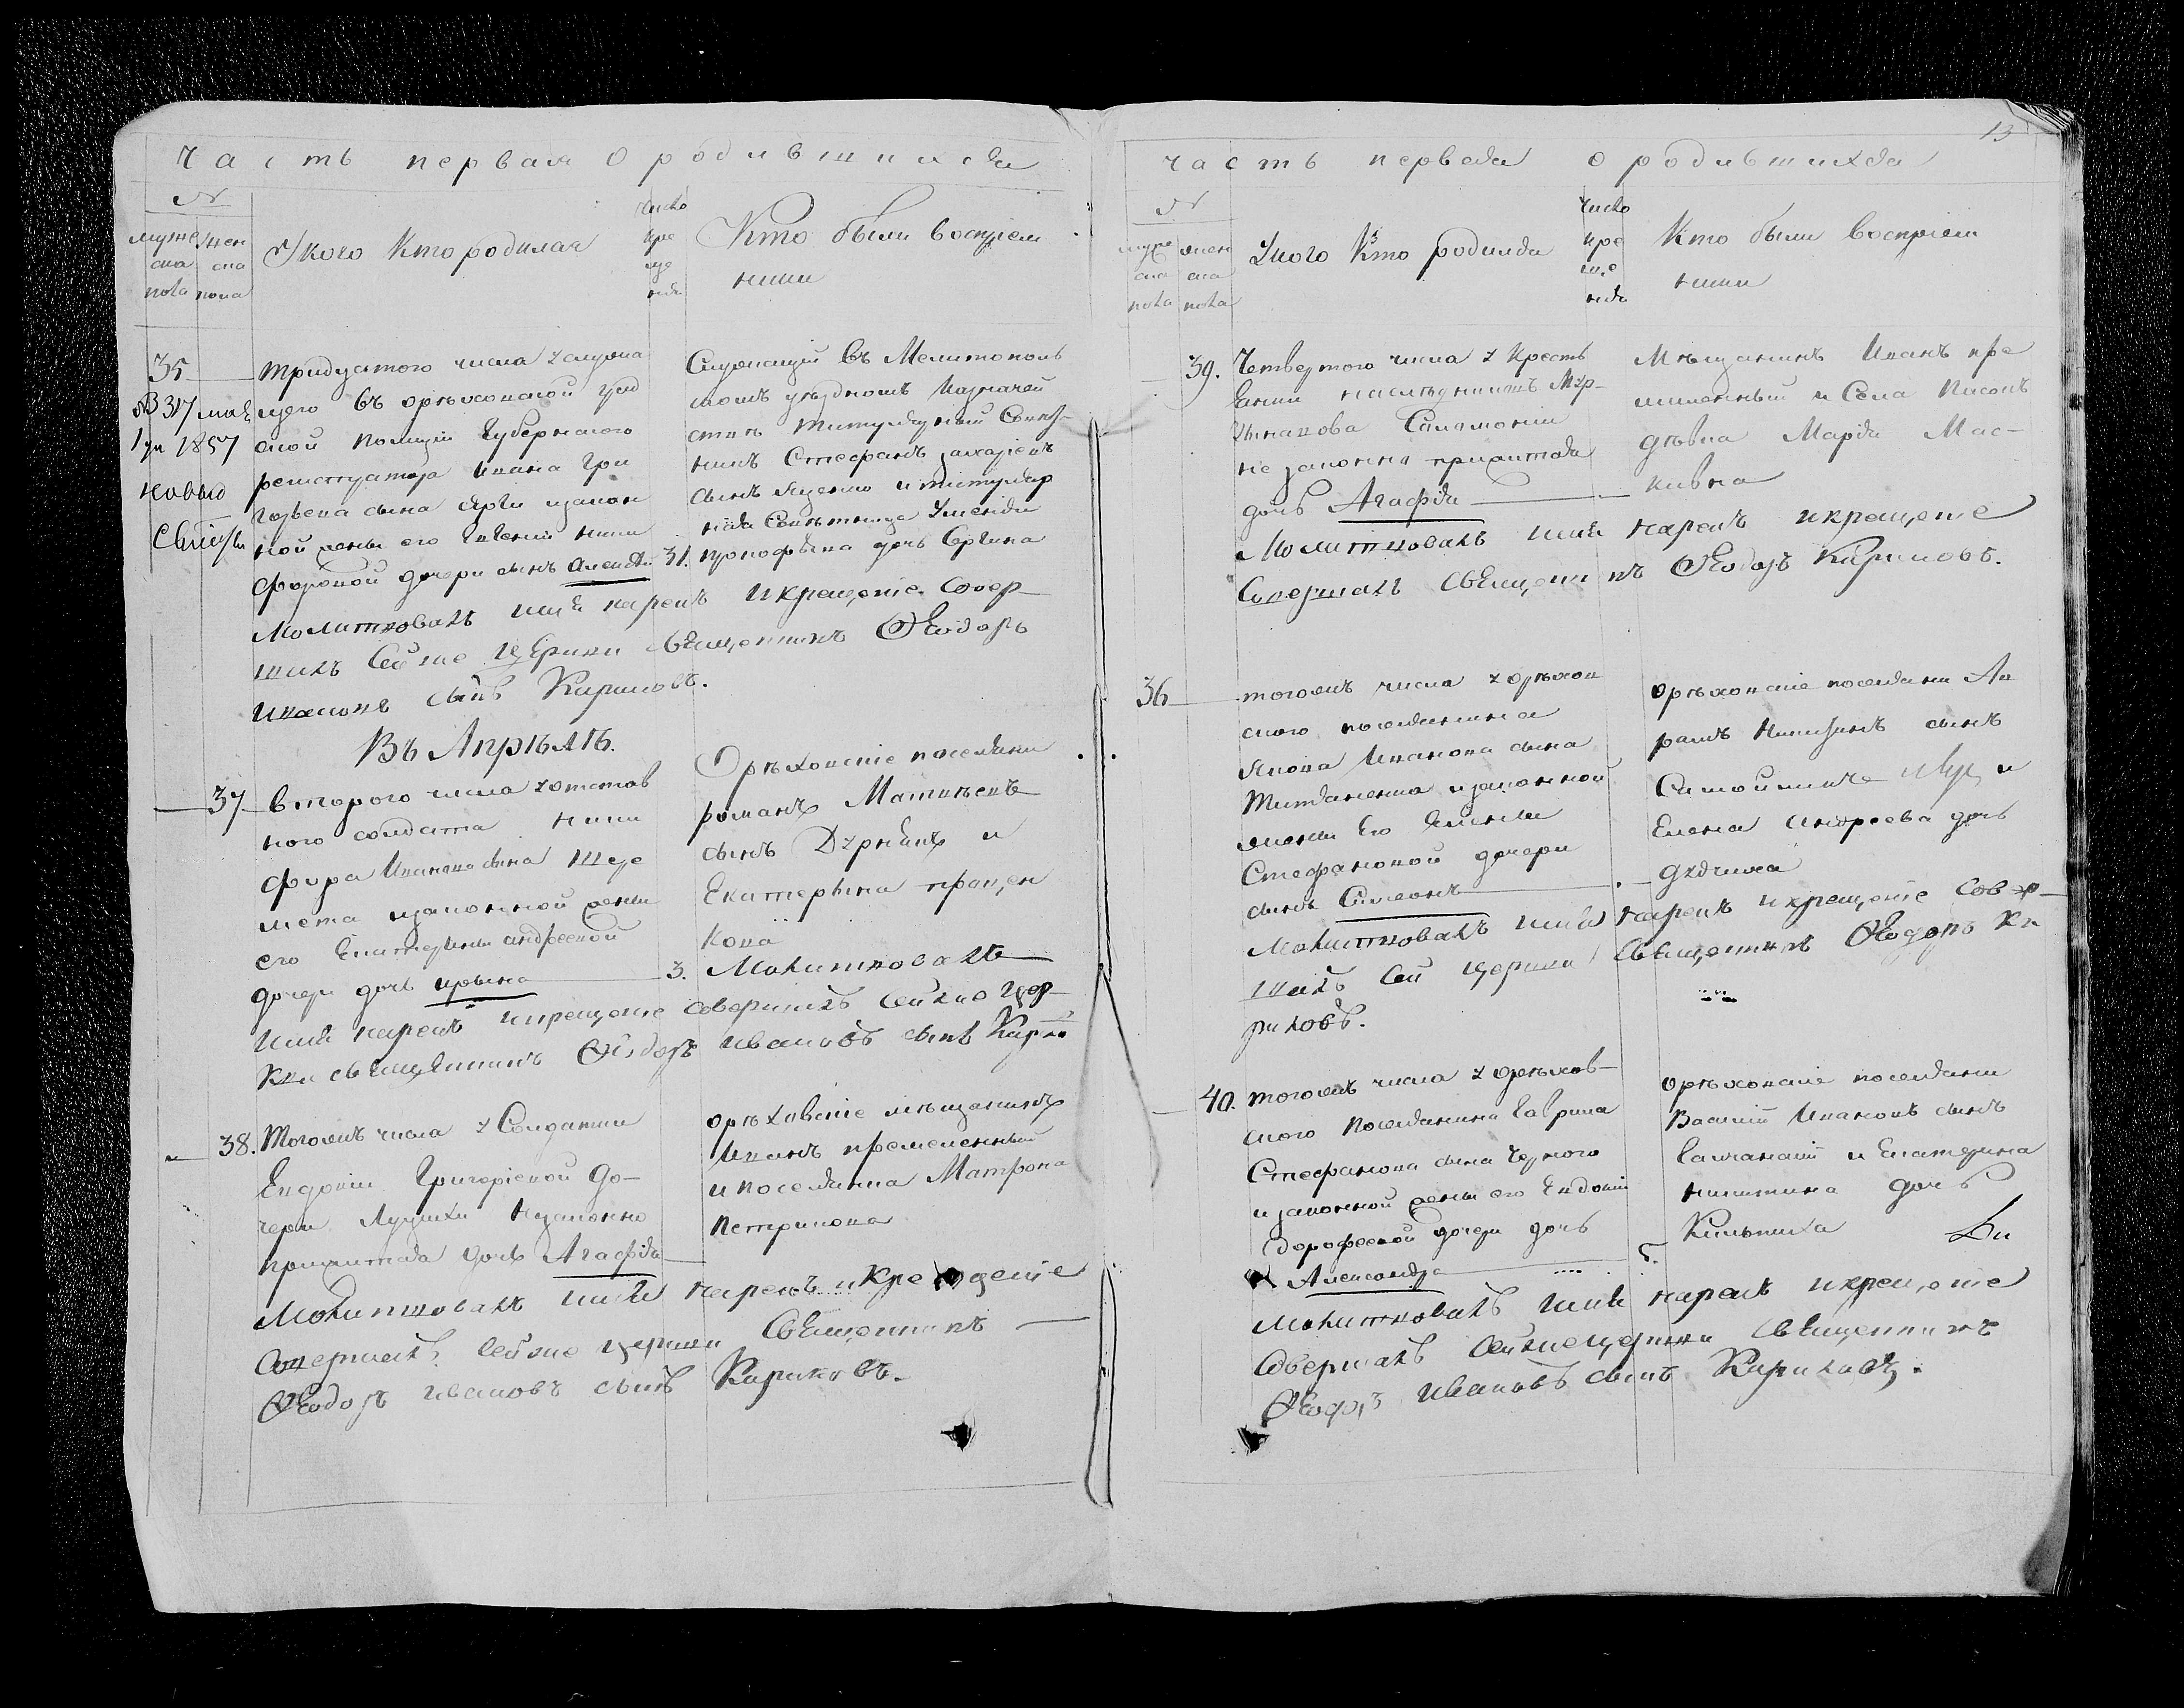 Часть первая о родившихся
№
мужеска пола
женска пола
У кого кто родился
Число крещенія
Кто были воспріемники
35
37 мая
1857
новый
тридцатого числа у служа
щего въ ореховской град
ской полиціи Губернского
регистратора Ивана Гри
горьева сына и закон
ной жены его Евгеніи Ники
форовой дочери сынъ Алексѣй 31.
Служащій въ Мелитополь
скомъ уѣздномъ Казначей
ствѣ титулярный Совѣт
никъ Стефанъ Захаріевъ
сынъ Яценко и титуляр
ная Совѣтница
Прокофьева дочь Сергина
Молитвовалъ имя нарекъ и крещеніе совер
шилъ Сей же церкви священникъ Ѳеодоръ
Ивановъ сынъ Кириловъ.
Въ Апрѣлѣ.
37
второго числа у отстав
ного солдата Ники
фора Иванова сына Шере
мета и законной жены
его Екатерины Андреевой
дочери дочь Ирина 3.
Орѣховскіе поселяни
романъ Матвѣевъ
сынъ и
Екатерына
кова
Молитвовалъ
имя нарекъ и крещеніе совершилъ Сей же цер
кви священникъ Ѳеодоръ Ивановъ сынъ Кирило
38.
Тогожъ числа у Солдатки
Евдокіи Григоріевой до
чери незаконно
прижитая дочь Агафія
орѣховскіе мѣщанинъ
Иванъ пременный
и поселянка Матрона
Петрикова
Молитвовалъ имя нарекъ и крещеніе
Совершилъ Сей же церкви Священникъ
Ѳеодоръ Ивановъ сынъ Кириловъ.
13
часть первая о родившихся
№
муже ска пола
жен ска пола
У кого кто родился
Число кре ще нія
Кто были воспріем ники
39.
Четвертого числа у Кресть
янки наследниковъ
Саломоніи
не законно прижитая
дочь Агафія
Мѣщанинъ Иванъ пре
милинный и Села
Марія Мас
кивна
Молитвовалъ имя нарекъ и крещеніе
Совершилъ священникъ Ѳеодоръ Кириловъ.
36
тогожъ числа у орѣхов
ского поселянина
Якова Иванова сына
и законной
жены Его
Стефановой дочери
сынъ Симеонъ
орѣховскіе поселяни Ав
рамъ сынъ
и
Елена Андреева дочь
Молитвовалъ имя нарекъ и крещеніе совер
шилъ сей церкви священникъ Ѳеодоръ Ки
риловъ.
40.
тогожъ числа у орѣхов
ского поселянина Гаврила
Стефанова сына Черного
и законной жены его Евдокіи
Дорофеевой дочери дочь
Александра 5.
орѣховскіе поселяни
Василій Ивановъ сынъ
и Екатерина
Никитина дочь
Молитвовалъ имя нарекъ и крещеніе
Совершилъ Сей же церкви священникъ
Ѳеодоръ Ивановъ сынъ Кириловъ.